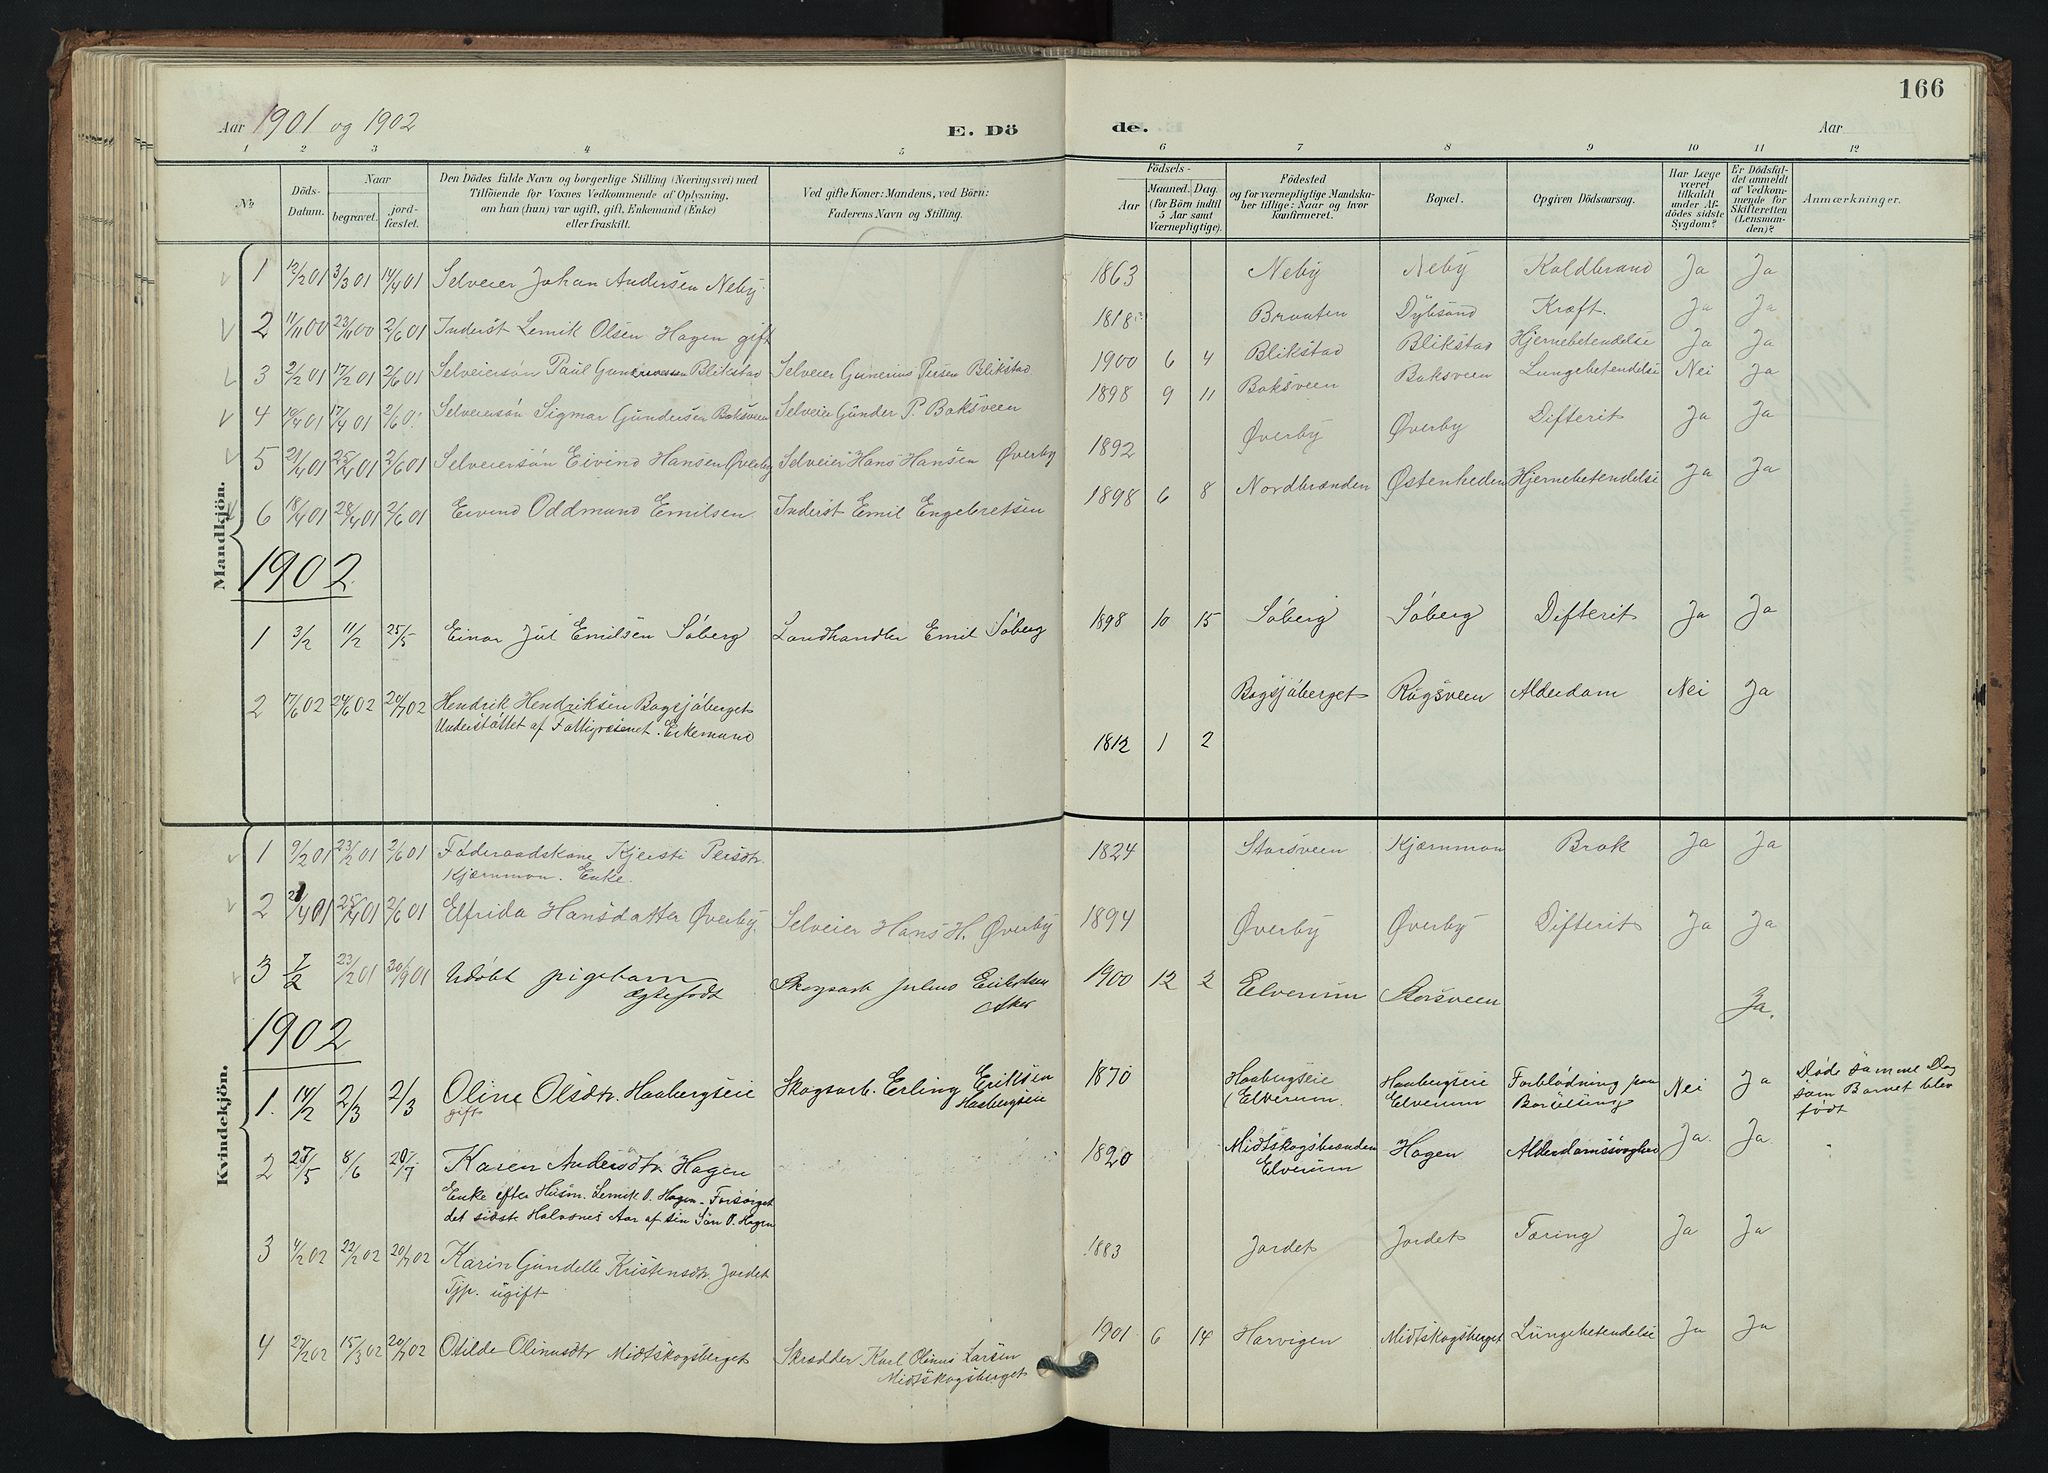 166
Aar 1901 og 1902
E. Dö
de.
Aar
1 2 3 4 5 6 7 8 9 10 11 12
No
Döds-Datum.
Naar
begravet.
jord-fæstet.
Den Dödes fulde Navn og borgerlige Stilling (Næringsvei) med
Tilföiende for Voxnes Vedkommende af Oplysning,
om han (hun) var ugift, gift, Enkemand (Enke)
eller fraskilt.
Ved gifte Koner: Mandens, ved Börn:
Faderens Navn og Stilling.
Födsels-
Aar
Maaned. Dag.
(for Börn indtil
5 Aar samt
Værnepligtige).
Födested
og for værnepligtige Mandska-
ber tillige: Naar og hvor
konfirmeret.
Bopæl.
Opgiven Dödsaarsag.
Har Læge
været
tilkaldt
under Af-
dödes sidste
Sygdom?
Er Dödsfal-
det anmeldt
af Vedkom-
mende for
Skifteretten
(Lensman-
den)?
Anmærkninger.
Mandkjön.
1 12/2 01 3/3 01 14/4 01 Selveier Johan Andersen Neby. 1863 Neby Neby Koldbrand Ja Ja
2 11/11 00 23/11 00 2/6 01 Inderst Lemik Olsen Hagen gift 1818 Braaten Dybsand Kræft. Ja Ja
3 2/2 01 17/2 01 2/6 01 Selveiersön Paul Blikstad Selveier Gunerius Persen Blikstad 1900 6 4 Blikstad Blikstad Hjernebetendelse Ja Ja
4 10/4 01 17/4 01 2/6 01 Selveiersön Sigmar Gundersen Baksveen Selveier Gunder P. Baksveen 1898 9 11 Baksveen Baksveen Lungebetendelse Nei Ja
5 21/4 01 25/4 01 2/6 01 Selveiersön Eivind Hansen Øverby Selveier Hans Hansen Øverby 1892 Øverby Øverby Difterit Ja Ja
6 18/4 01 28/4 01 2/6 01 Eivind Oddmund Emilsen Inderst Emil Engebretsen 1898 6 8 Nordbranden Østenheden Hjernebetendelse Ja Ja
1902.
1 3/2 11/2 25/5 Einar Jul Emilsen Söberg Landhandler Emil Söberg 1898 10 15 Söberg Söberg Difterit Ja Ja
2 17/6 02 24/6 02 20/7 02 Hendrik Hendriksen Bagsjöberget Bagsjöberget Rögsveen Alderdom Nei Ja
Understöttet af Fattigvæsenet. Enkemand
1812 1 2
Kvindekjön.
1 9/2 01 23/2 01 2/6 01 Föderaadskone Kjersti Persdtr. 1824 Storsveen Kjærnmon Brok Ja Ja
Kjærnmon. Enke.
2 21/4 01 25/4 01 2/6 01 Elfrida Hansdatter Øverby. Selveier Hans H. Øverby 1894 Øverby Øverby Difterit Ja Ja
3 7/2 23/2 01 30/9 01 Udöbt pigebarn Skogsarb Julius 1900 12 2 Elverum Storsveen Ja.
ægtefödt
1902
1. 14/2 2/3 2/3 Oline Olsdtr. Haabergseie Skogsarb. Erling Eriksen 1870 Haabergseie Haabergseie Forblödning paa Nei Ja Döde samme Dag
gift Haabergseie Elverum. Elverum Barselseng som Barnet blev
födt
2 28/5 8/6 20/7 Karen Andersdtr. Hagen 1820 Midtskogsbranden Hagen Alderdomssvaghed Ja. Ja.
Elverum
Enke efter Husm. Lemik O. Hagen. Forsörget
det sidste Halvsnes Aar af sin Sön O. Hagen
3 4/2 02 22/2 02 20/7 02 Karin Gundelle Kristensdtr. Jordet 1883 Jordet Jordet Tæring Ja Ja
Tjp. ugift
4 27/2 02 15/3 02 20/7 02 Otilde Olinusdtr Midtskogsberget Skrædder Karl Olinus Larsen 1901 6 14 Harvigen Midtskogsberget Lungebetendelse Ja Ja
Midtskogsberget